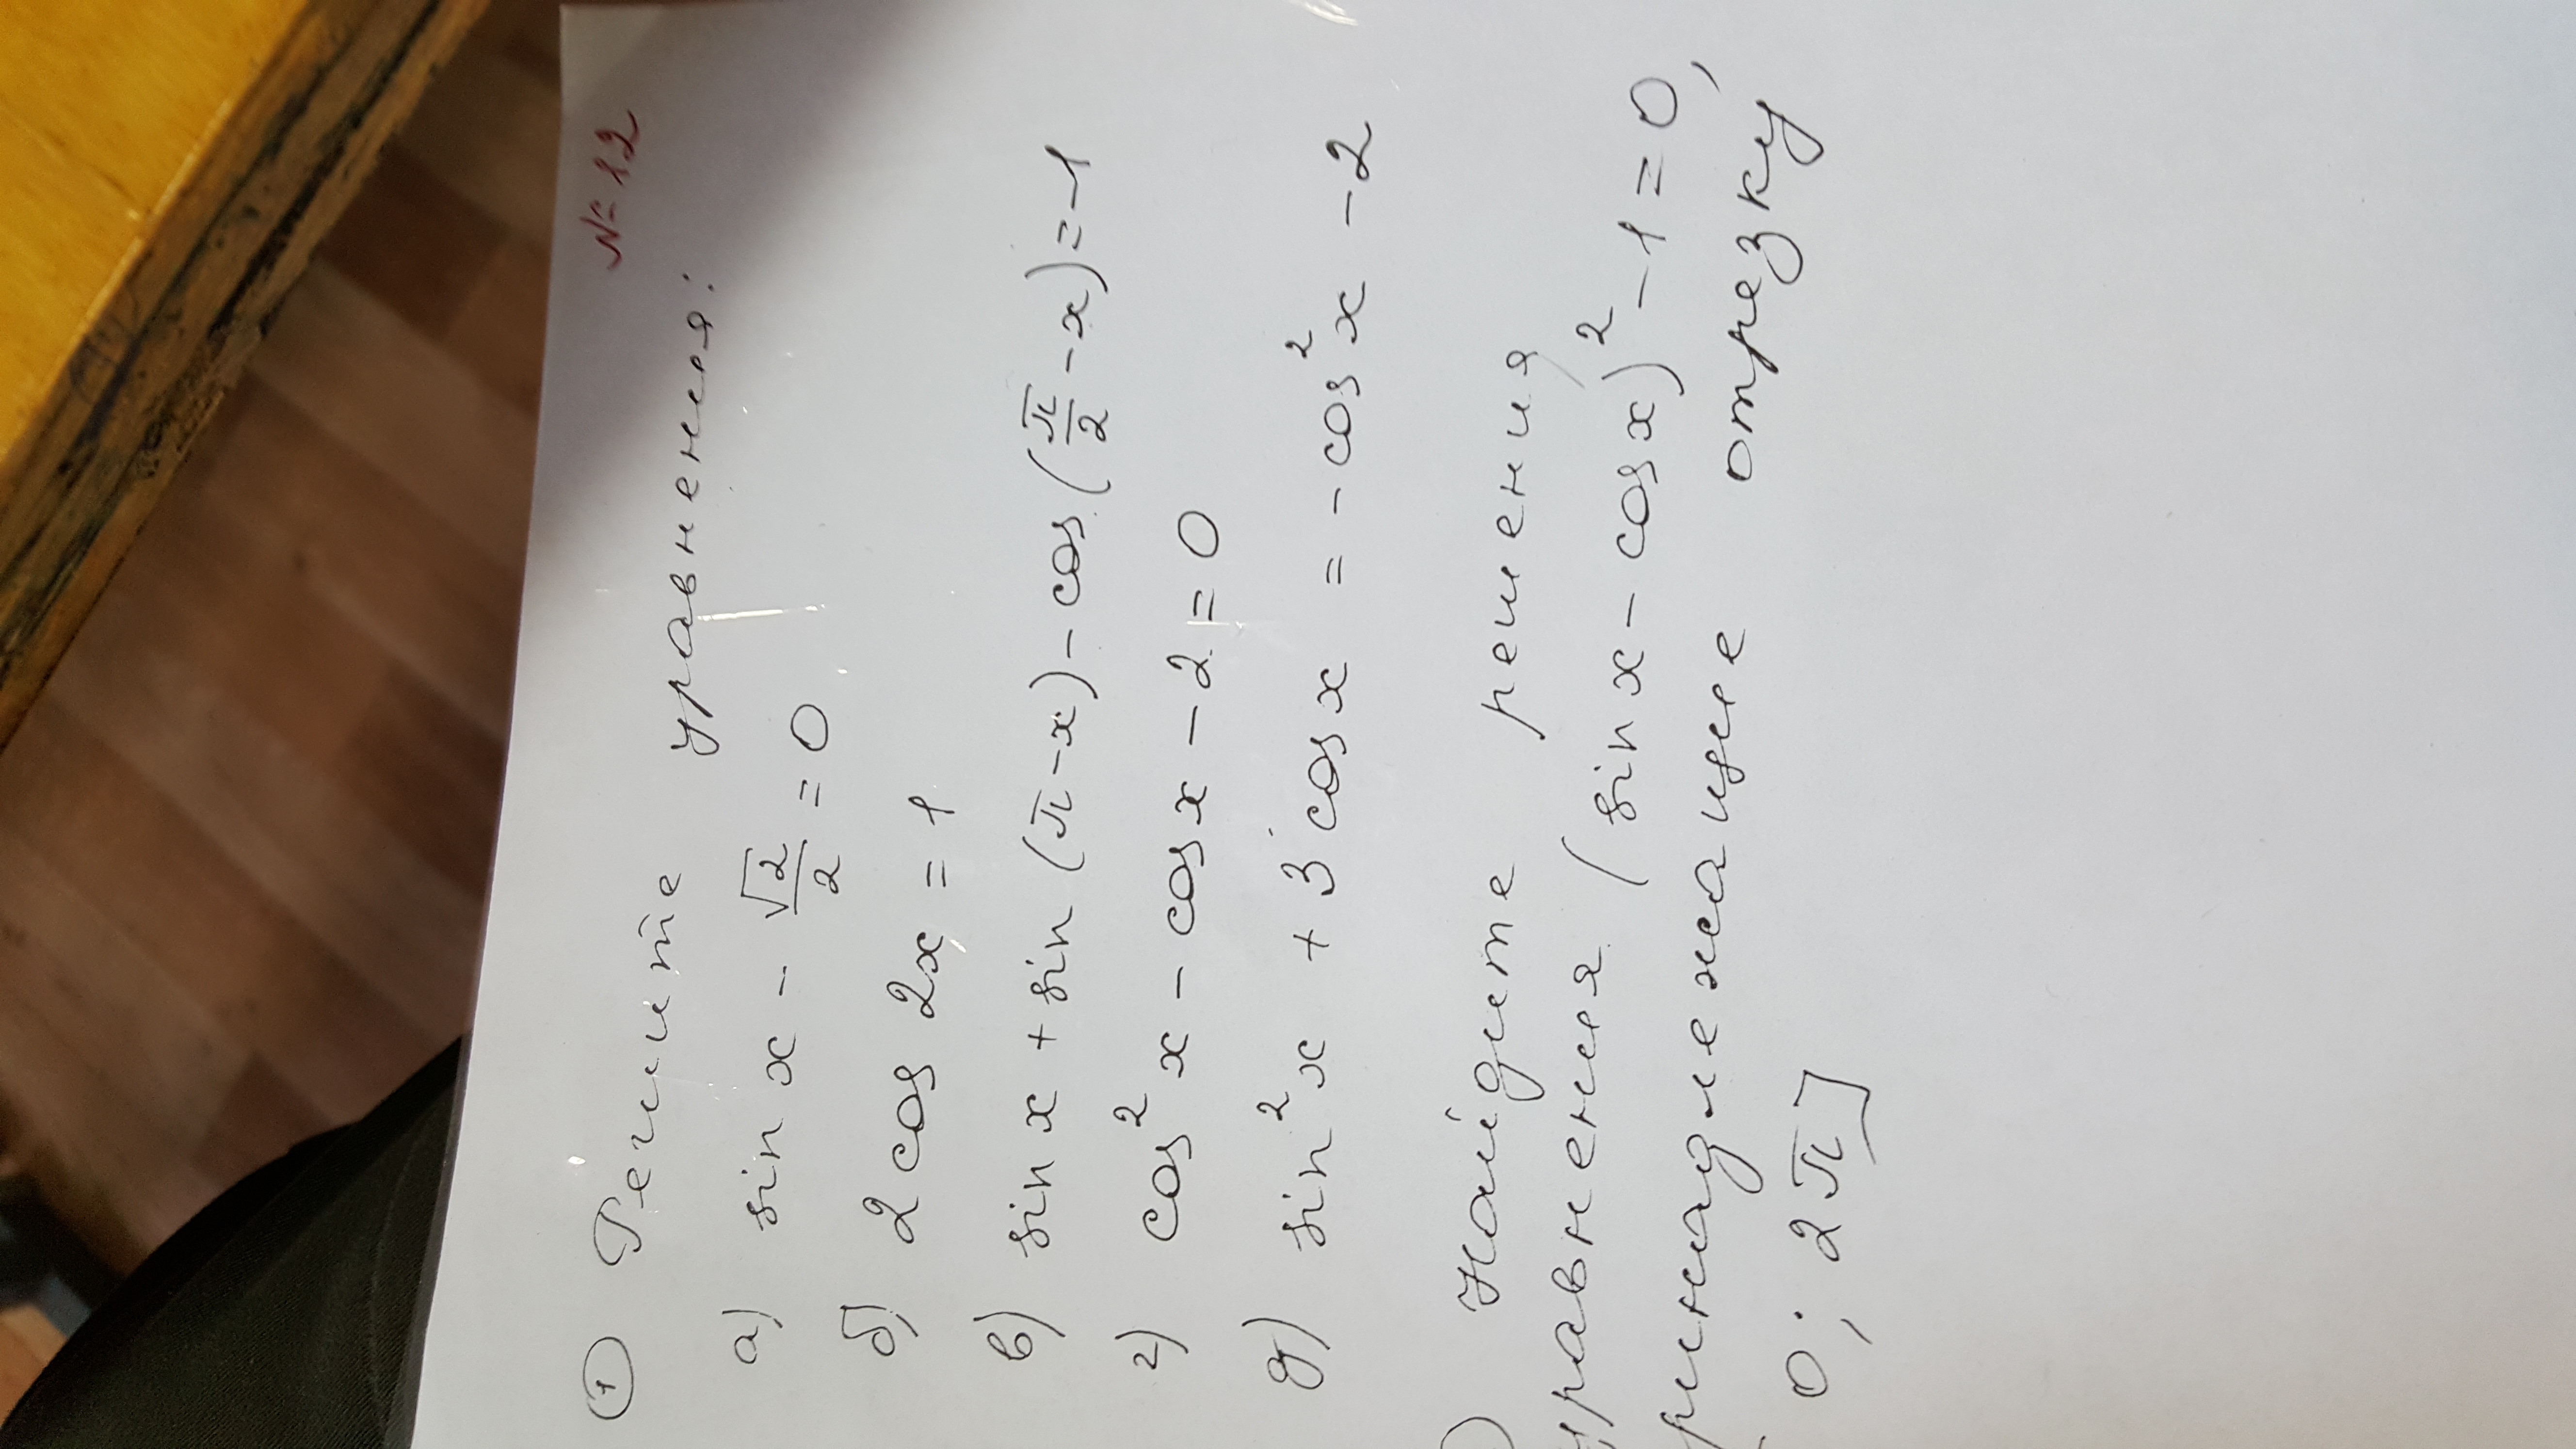 № 12
① Решите уравнения:
а) sin x - √2/2 = 0
б) 2 cos 2x = 1
в) sin x + sin (π - x) - cos (π/2 - x) = -1
г) cos² x - cos x - 2 = 0
д) sin² x + 3 cos x = - cos² x - 2
) Найдите решения
уравнения (sin x - cos x)² - 1 = 0,
ринадлежащие отрезку
0; 2π]